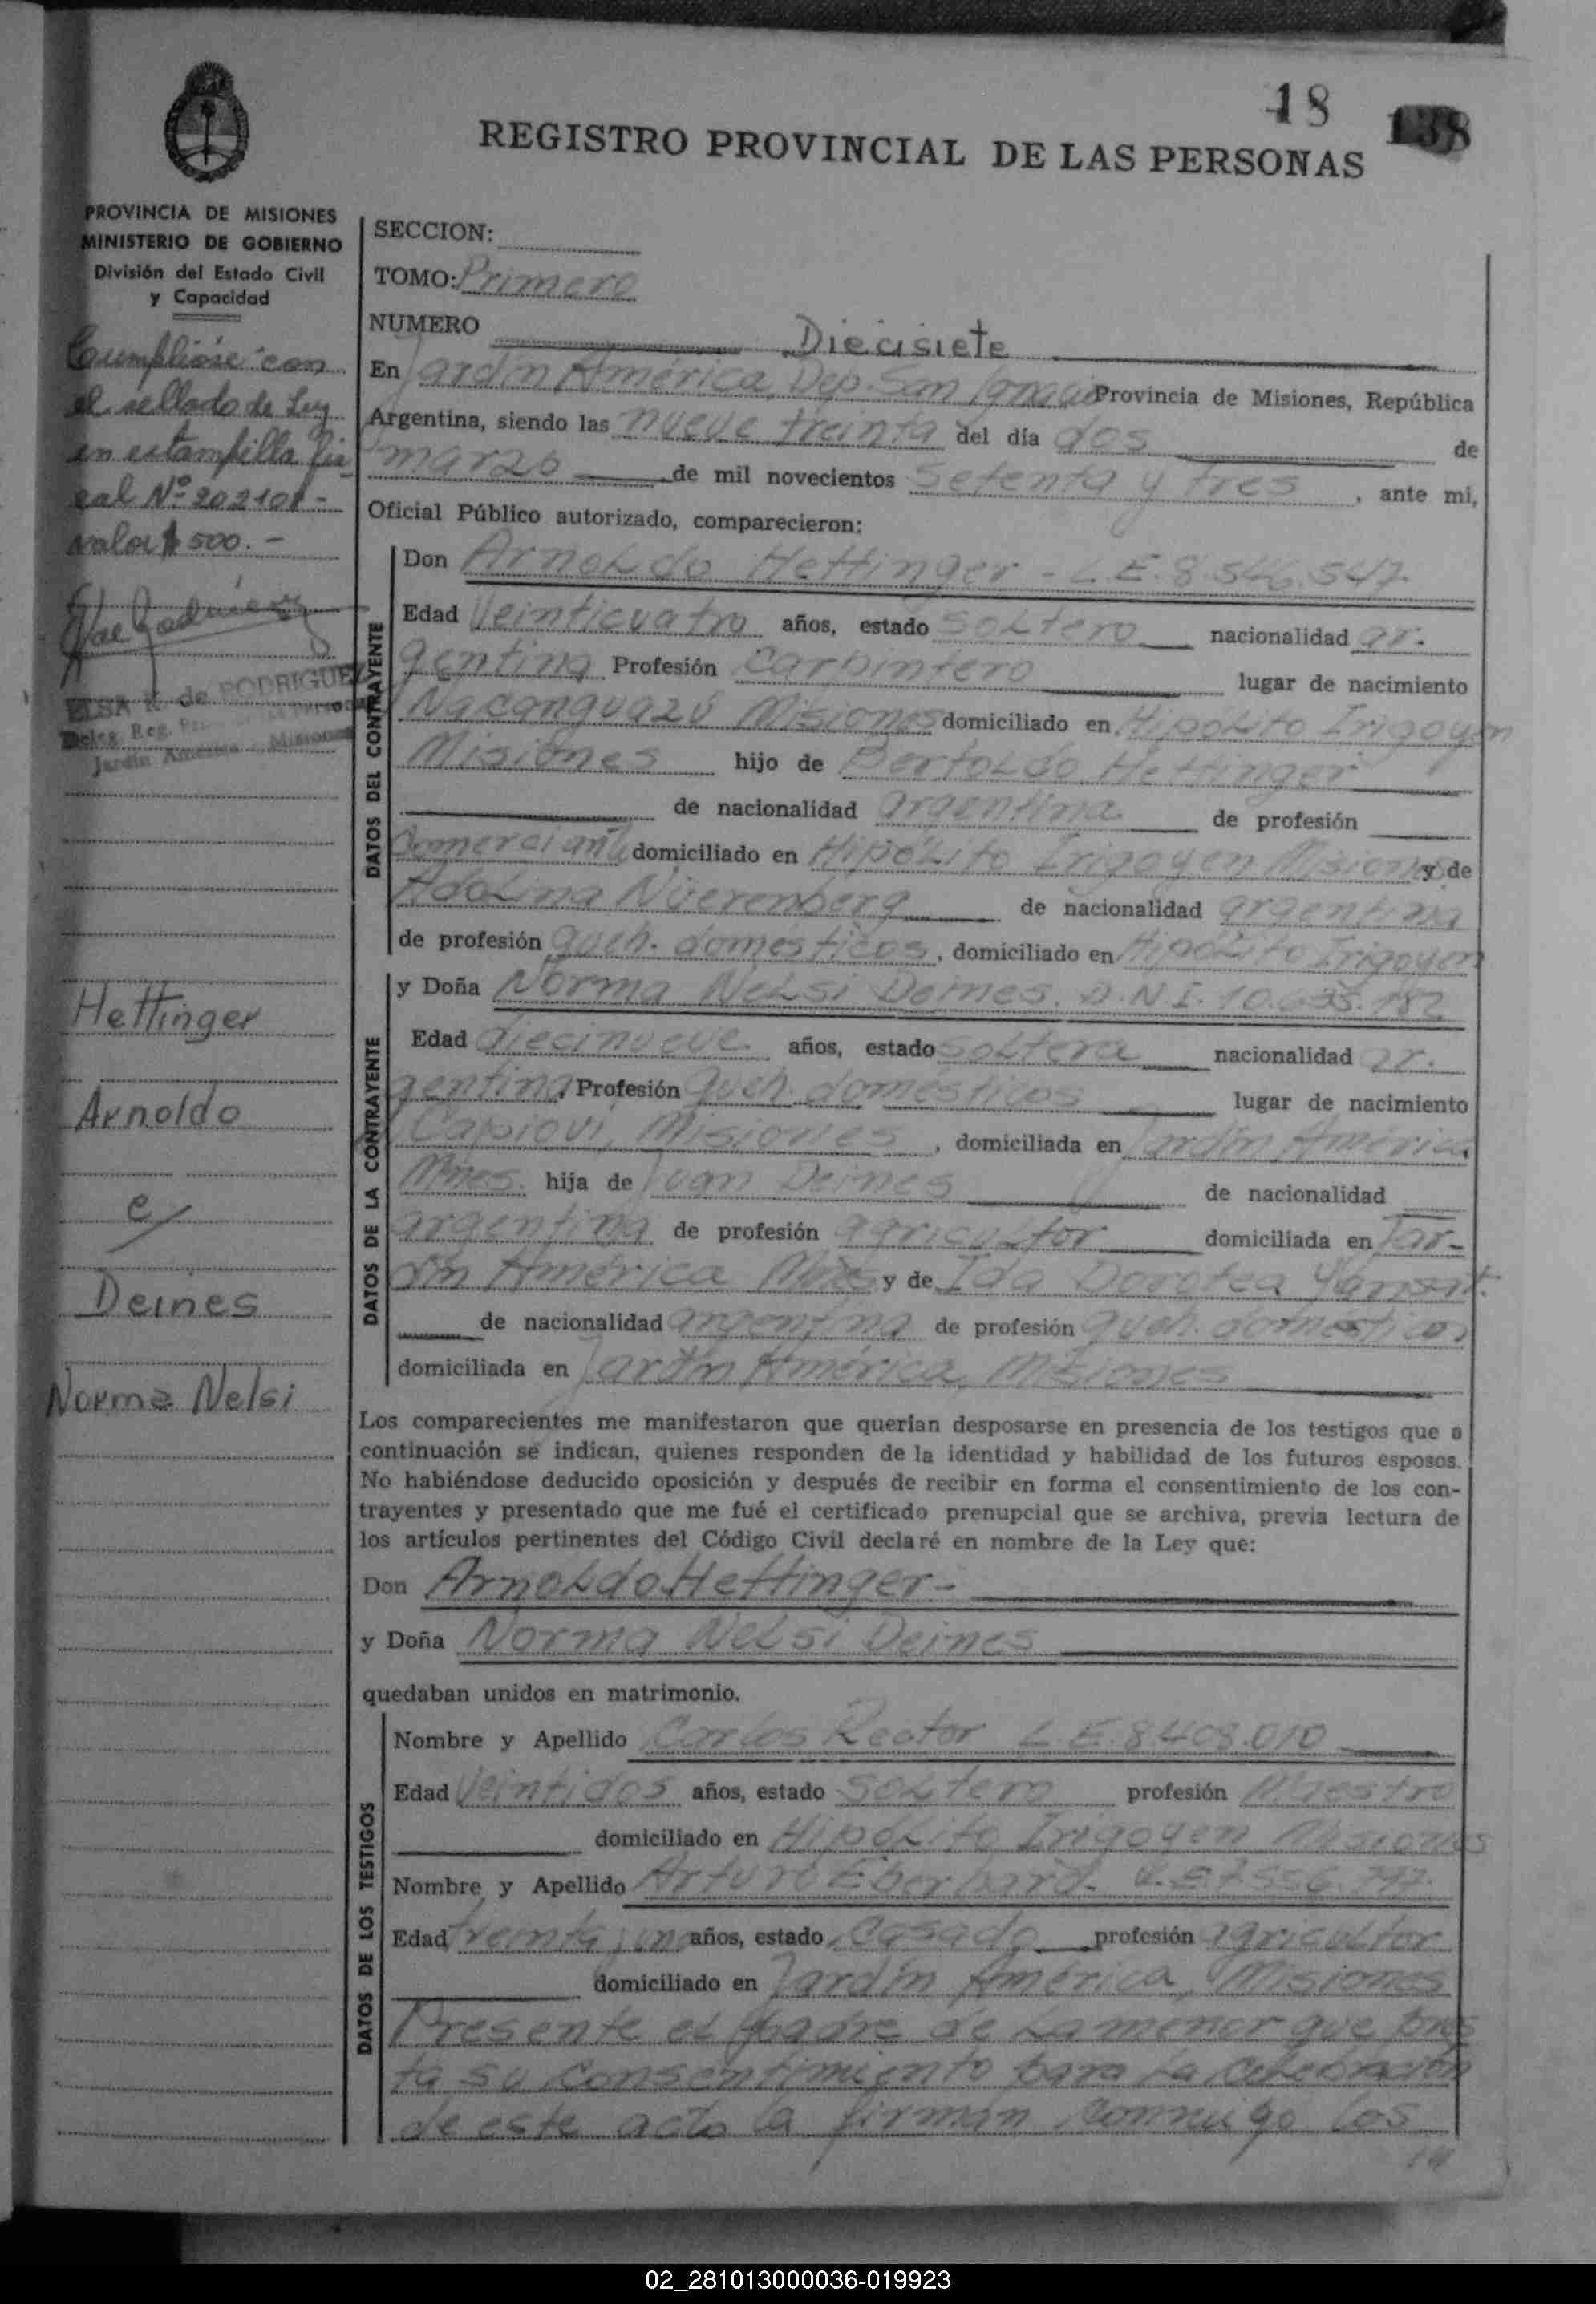 18 138
REGISTRO PROVINCIAL DE LAS PERSONAS
PROVINCIA DE MISIONES
MINISTERIO DE GOBIERNO
División del Estado Civil
y Capacidad
Cumplióse con
el sellado de Ley
en estampilla fis
cal Nº 202101-
valor $ 500.-
ELSA K. de RODRIGUEZ
Deleg. Reg.
Jardín América - Misiones
Hettinger
Arnoldo
e/
Deines
Norma Nelsi
SECCION:
TOMO: Primero
NUMERO Diecisiete
En Jardín América, Dep. San Ignacio Provincia de Misiones, República
Argentina, siendo las nueve treinta del día dos de
marzo de mil novecientos Setenta y tres, ante mi,
Oficial Público autorizado, comparecieron:
DATOS DEL CONTRAYENTE
Don Arnoldo Hettinger - L.E. 8.546.547.
Edad Veinticuatro años, estado Soltero nacionalidad ar-
gentina Profesión Carpintero lugar de nacimiento
Ñacanguazú Misiones domiciliado en Hipólito Irigoyen
Misiones hijo de Bertoldo Hettinger
de nacionalidad argentina de profesión
Comerciante domiciliado en Hipólito Irigoyen Misiones y de
Adolina Nüerenberg de nacionalidad argentina
de profesión queh. domésticos, domiciliado en Hipólito Irigoyen
DATOS DE LA CONTRAYENTE
y Doña Norma Nelsi Deines. D.N.I. 10.635.182
Edad diecinueve años, estado Soltera nacionalidad ar-
gentina. Profesión queh. domésticos lugar de nacimiento
Capioví, Misiones, domiciliada en Jardín América
Mnes. hija de Juan Deines de nacionalidad
argentina de profesión agricultor domiciliada en Jar-
dín América Mnes y de Ida Dorotea
de nacionalidad argentina de profesión queh. domésticos
domiciliada en Jardín América, Misiones
Los comparecientes me manifestaron que querían desposarse en presencia de los testigos que a
continuación se indican, quienes responden de la identidad y habilidad de los futuros esposos.
No habiéndose deducido oposición y después de recibir en forma el consentimiento de los con-
trayentes y presentado que me fué el certificado prenupcial que se archiva, previa lectura de
los artículos pertinentes del Código Civil declaré en nombre de la Ley que:
Don Arnoldo Hettinger-
y Doña Norma Nelsi Deines
quedaban unidos en matrimonio.
DATOS DE LOS TESTIGOS
Nombre y Apellido Carlos Reator L.E. 8.408.010
Edad Veintidos años, estado Soltero profesión Maestro
domiciliado en Hipólito Irigoyen Misiones
Nombre y Apellido Arturo Eberhard. L.E. 7.556.797.
Edad treinta y un años, estado Casado profesión agricultor
domiciliado en Jardín América, Misiones
Presente el padre de la menor que pres
ta su consentimiento para la celebración
de este acto la firman conmigo los
02_281013000036-019923